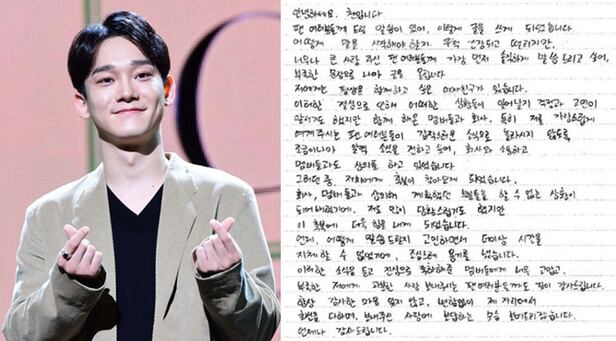 안녕하세요. 첸입니다
팬 여러분들께 드릴 말씀이 있어, 이렇게 글을 쓰게 되었습니다.
어떻게 말을 시작해야 할지 무척 긴장되고 떨리지만,
너무나 큰 사랑 주신 팬 여러분들께 가장 먼저 솔직하게 말씀드리고 싶어,
부족한 문장으로나마 글을 올립니다
저에게는 평생을 함께하고 싶은 여자친구가 있습니다.
이러한 결심으로 인해 어떠한 상황들이 일어날지 걱정과 고민이
앞서기도 했지만 함께 해온 멤버들과 회사, 특히 저를 자랑스럽게
여겨주시는 팬 여러분들이 갑작스러운 소식으로 놀라시지 않도록
조금이나마 일찍 소식을 전하고 싶어, 회사와도 소통하고
멤버들과도 상의를 하고 있었습니다
그러던 중, 저희에게 축복이 찾아오게 되었습니다.
회사, 멤버들과 상의해 계획했던 부분들을 할 수 없는 상황이
되어버렸기에, 저도 많이 당황스럽기도 했지만
이 축복에 더욱 힘을 내게 되었습니다.
언제, 어떻게 말씀드릴지 고민하면서 더이상 시간을
지체할 수 없었기에, 조심스레 용기를 냈습니다.
이러한 소식을 듣고 진심으로 축하해준 멤버들에게 너무 고맙고,
부족한 저에게 과분한 사랑 보내주시는 팬 여러분들께도 깊이 감사드립니다.
항상 감사한 마음 잊지 않고, 변함없이 제 자리에서
최선을 다하며, 보내주신 사랑에 보답하는 모습 보여드리겠습니다.
언제나 감사드립니다.